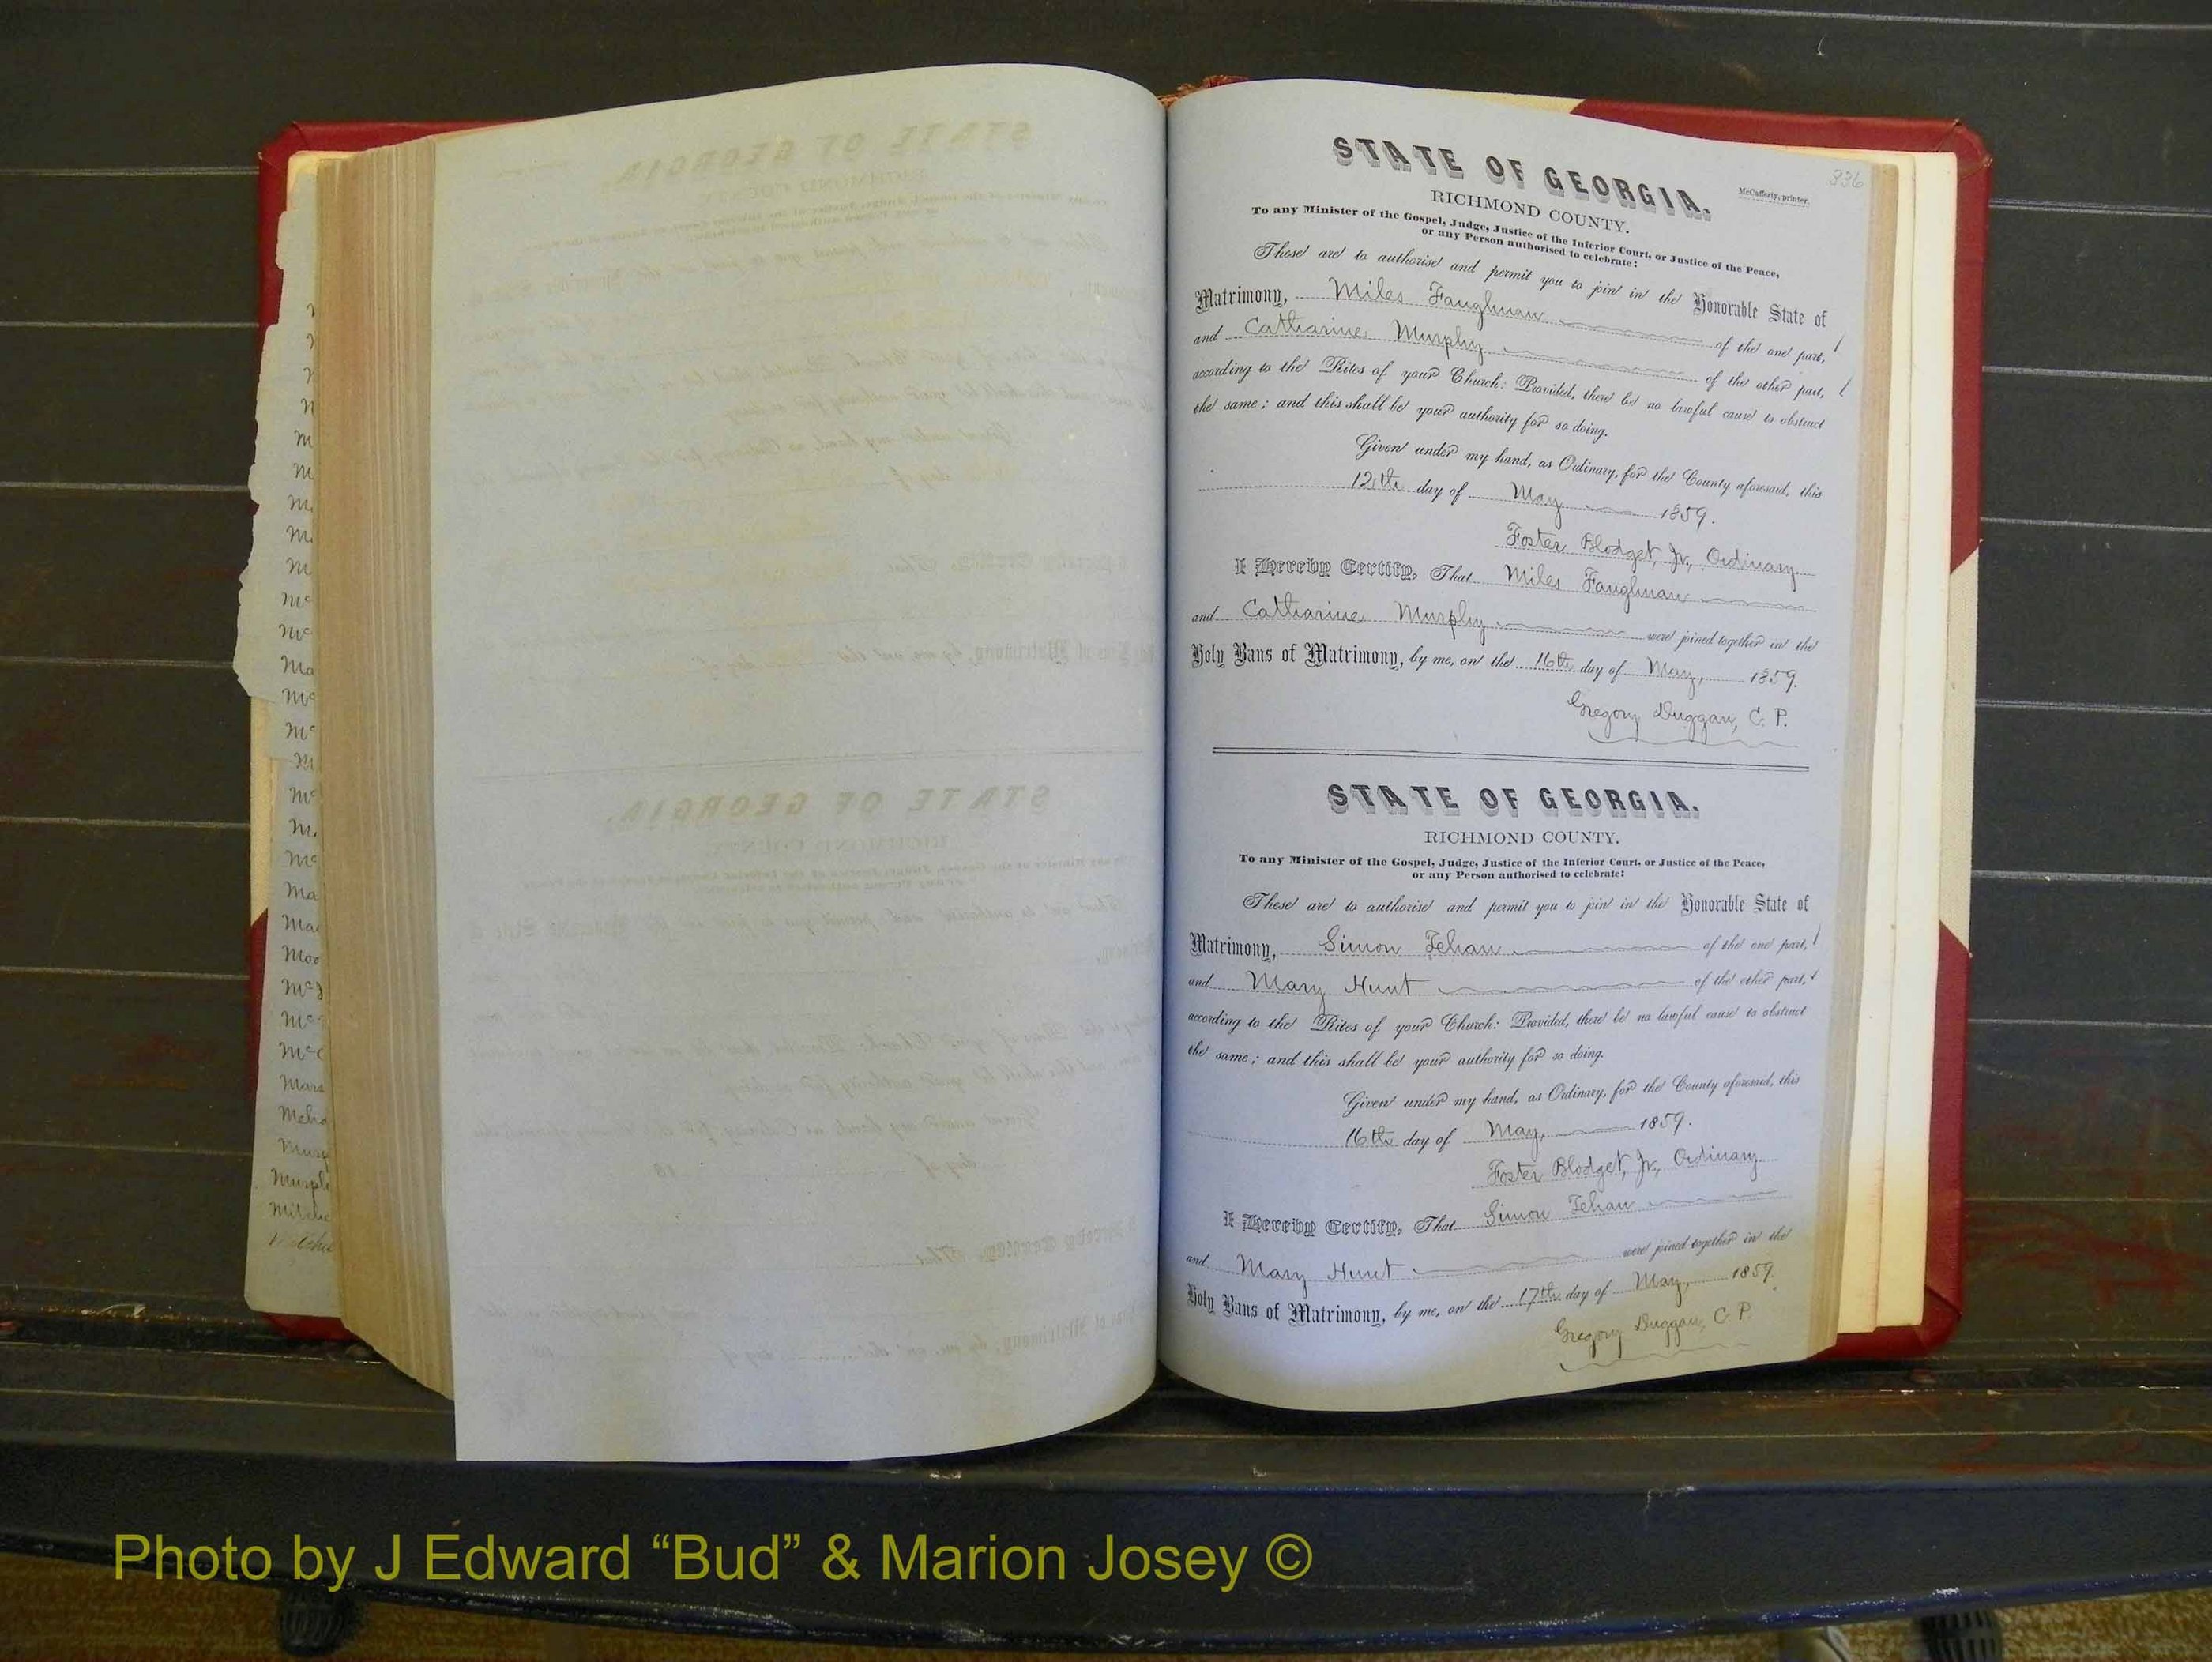 336
STATE OF GEORGIA.
McCafferty, printer.
RICHMOND COUNTY.
To any Minister of the Gospel, Judge, Justice of the Inferior Court, or Justice of the Peace,
or any Person authorised to celebrate:
These are to authorise and permit you to join in the Honorable State of
Matrimony, Miles Faughnan of the one part,
and Catharine Murphy of the other part,
according to the Rites of your Church: Provided, there be no lawful cause to obstruct
the same; and this shall be your authority for so doing.
Given under my hand, as Ordinary, for the County aforesaid, this
12th day of May 1859.
Foster Blodget, Jr., Ordinary
I Hereby Certify, That Miles Faughnan
and Catharine Murphy were joined together in the
Holy Bans of Matrimony, by me, on the 16th day of May, 1859.
Gregory Duggan, C. P.
STATE OF GEORGIA.
RICHMOND COUNTY.
To any Minister of the Gospel, Judge, Justice of the Inferior Court, or Justice of the Peace,
or any Person authorised to celebrate:
These are to authorise and permit you to join in the Honorable State of
Matrimony, Simon Tehan of the one part,
and Mary Hunt of the other part,
according to the Rites of your Church: Provided, there be no lawful cause to obstruct
the same; and this shall be your authority for so doing.
Given under my hand, as Ordinary, for the County aforesaid, this
16th day of May, 1859.
Foster Blodget, Jr., Ordinary
I Hereby Certify, That Simon Tehan
and Mary Hunt were joined together in the
Holy Bans of Matrimony, by me, on the 17th day of May, 1859.
Gregory Duggan, C. P.
Photo by J Edward “Bud” & Marion Josey ©